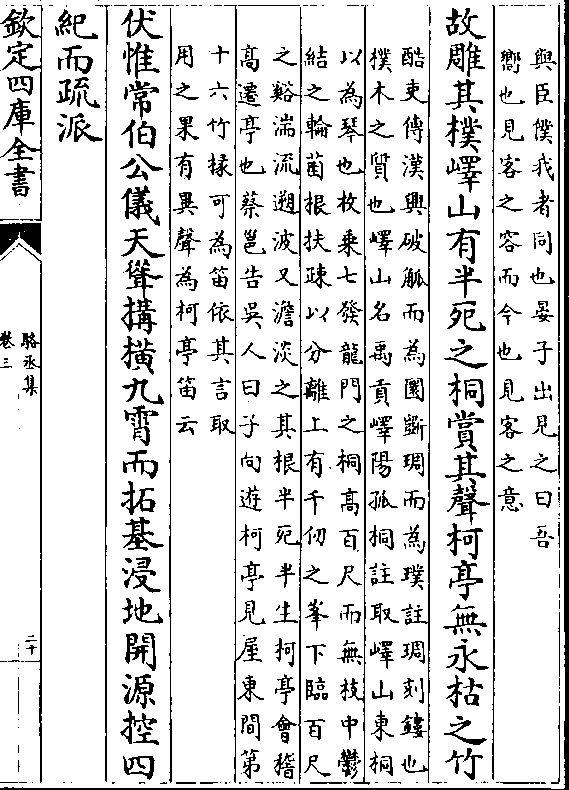 與臣僕我者同也晏子出見之曰吾
嚮也見客之容而今也見客之意
故雕其樸嶧山有半死之桐賞其聲柯亭無永枯之竹
酷吏傳漢興破觚而為圜斵琱而為璞註琱刻鏤也
樸木之質也嶧山名禹貢嶧陽孤桐註取嶧山東桐
以為琴也枚乗七發龍門之桐高百尺而無枝中鬱
結之輪菌根扶疎以分離上有千仞之峯下臨百尺
之谿湍流遡波又澹淡之其根半死半生柯亭會稽
高遷亭也蔡邕告吳人曰子向遊柯亭見屋東間第
十六竹椽可為笛依其言取
用之果有異聲為柯亭笛云
伏惟常伯公儀天聳搆橫九霄而拓基浸地開源控四
紀而疏派
欽定四庫全書
駱丞集
卷三
二十